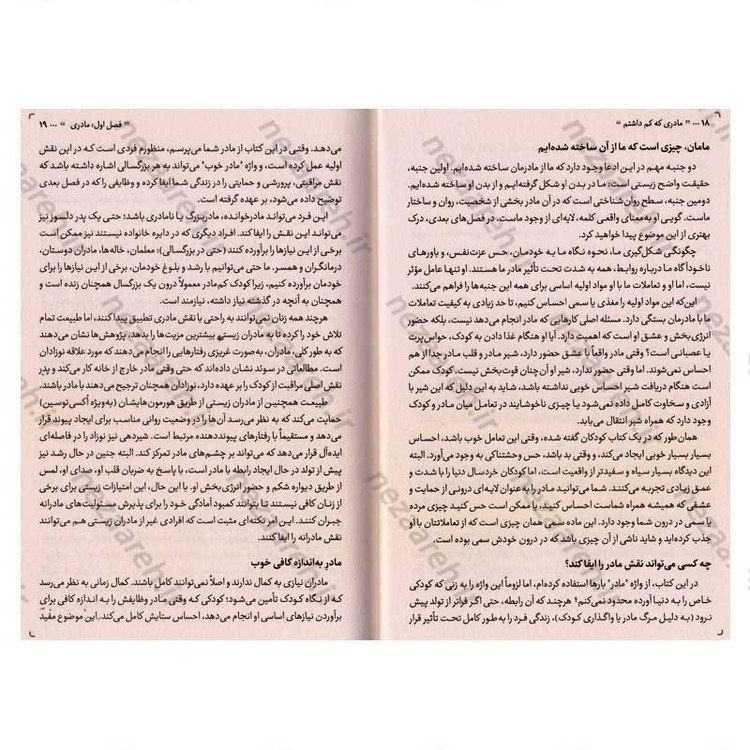 ۱۸ ... " مادری که کم داشتم "
مامان، چیزی است که ما از آن ساخته شده‌ایم
دو جنبه مهم در این ادعا وجود دارد که ما از مادرمان ساخته شده‌ایم. اولین جنبه،
حقیقت واضح زیستی است: ما در بدن او شکل گرفته‌ایم و از بدن او ساخته شده‌ایم.
دومین جنبه، سطح روان شناختی است که در آن مادر بخشی از شخصیت، روان و ساختار
ماست. گویی او به‌معنای واقعی کلمه، لایه‌ای از وجود ماست. در فصل‌های بعدی، درک
بهتری از این موضوع پیدا خواهید کرد.
چگونگی شکل‌گیری ما، نحوه نگاه ما به خودمان، حس عزت‌نفس، و باورهای
ناخودآگاه ما درباره روابط، همه به شدت تحت تأثیر مادر ما هستند. او تنها عامل مؤثر
نیست، اما او و تعاملات ما با او مواد اولیه اساسی برای همه این جنبه‌ها را فراهم می‌کنند.
این‌که این مواد اولیه را مغذی یا سمی احساس کنیم، تا حد زیادی به کیفیت تعاملات
ما با مادرمان بستگی دارد. مسئله اصلی کارهایی که مادر انجام می‌دهد نیست، بلکه حضور
انرژی‌بخش و عشق او است که اهمیت دارد. آیا او هنگام غذا دادن به کودک، حواس‌پرت
یا عصبانی است؟ وقتی مادر واقعاً با عشق حضور دارد، شیر مادر و قلب مادر جدا از هم
نیست. اما وقتی حضور ندارد، شیر او آن‌چنان قوت‌بخش نیست. کودک ممکن
است هنگام دریافت شیر احساس خوبی نداشته باشد، شاید به این دلیل که این شیر با
آزادی و سخاوت کامل داده نمی‌شود یا چیزی ناخوشایند در تعامل میان مادر و کودک
وجود دارد که همراه شیر انتقال می‌یابد.
همان‌طور که در یک کتاب کودکان گفته شده، وقتی این تعامل خوب باشد، احساس
بسیار بسیار خوبی ایجاد می‌کند، و وقتی بد باشد، حس وحشتناکی به وجود می‌آورد. البته
این دیدگاه بسیار سیاه و سفیدتر از واقعیت است، اما کودکان خردسال دنیا را با شدت و
عمق زیادی تجربه می‌کنند. شما می‌توانید مادر را به عنوان لایه‌ای درونی از حمایت و
عشقی که همیشه همراه شماست احساس کنید، یا ممکن است حس کنید چیزی مرده
یا سمی در درون شما وجود دارد. این ماده سمی همان چیزی است که از تعاملاتتان با او
جذب کرده‌اید و شاید ناشی از آن چیزی باشد که در درون خودش سمی بوده است.
چه کسی می‌تواند نقش مادر را ایفا کند؟
در این کتاب، از واژه "مادر" بارها استفاده کرده‌ام، اما لزوماً این واژه را به زنی که کودکی
خاص را به دنیا آورده محدود نمی‌کنم؛ هرچند که آن رابطه، حتی اگر فراتر از تولد پیش
نرود (به دلیل مرگ مادر یا واگذاری کودک)، زندگی فرد را به‌طور کامل تحت تأثیر قرار
" فصل اول: مادری " ... ۱۹
می‌دهد. وقتی در این کتاب از مادر شما می‌پرسم، منظورم فردی است که در این نقش
اولیه عمل کرده است، و واژه "مادر خوب" می‌تواند به هر بزرگسالی اشاره داشته باشد که
نقش مراقبتی، پرورشی و حمایتی را در زندگی شما ایفا کرده و وظایفی را که در فصل بعدی
توضیح داده می‌شود، بر عهده گرفته است.
این فرد می‌تواند مادرخوانده، مادربزرگ یا نامادری باشد؛ حتی یک پدر دلسوز نیز
می‌تواند این نقش را ایفا کند. افراد دیگری که در دایره خانواده نیستند نیز ممکن است
برخی از این نیازها را برآورده کنند (حتی در بزرگسالی): معلمان، خاله‌ها، مادران دوستان،
درمانگران و همسر. ما حتی می‌توانیم با رشد و بلوغ خودمان، برخی از این نیازها را برای
خودمان برآورده کنیم، زیرا کودک کم‌مادر معمولاً درون یک بزرگسال همچنان زنده است و
همچنان به آنچه در گذشته نیاز داشته، نیازمند است.
هرچند همه زنان نمی‌توانند به راحتی با نقش مادری تطبیق پیدا کنند، اما طبیعت تمام
تلاش خود را کرده تا به مادران زیستی بیشترین مزیت‌ها را بدهد. پژوهش‌ها نشان می‌دهند
که به طور کلی، مادران، به‌صورت غریزی رفتارهایی را انجام می‌دهند که مورد علاقه نوزادان
است. مطالعاتی در سوئد نشان داده‌اند که حتی وقتی مادر خارج از خانه کار می‌کند و پدر
نقش اصلی مراقبت از کودک را بر عهده دارد، نوزادان همچنان ترجیح می‌دهند با مادر باشند.
طبیعت همچنین از مادران زیستی از طریق هورمون‌هایشان (به‌ویژه اُکسی‌توسین)
حمایت می‌کند که به نظر می‌رسد آن‌ها را در وضعیت روانی مناسب برای ایجاد پیوند قرار
می‌دهد و مستقیماً با رفتارهای پیونددهنده مرتبط است. شیردهی نیز نوزاد را در فاصله‌ای
ایده‌آل قرار می‌دهد که می‌تواند بر چشم‌های مادر تمرکز کند. البته جنین در حال رشد نیز
پیش از تولد در حال ایجاد رابطه با مادر است، با پاسخ به ضربان قلب او، صدای او، لمس
از طریق دیواره شکم و حضور انرژی‌بخش او. با این حال، این امتیازات زیستی برای برخی
از زنان کافی نیستند تا بتوانند کمبود آمادگی خود را برای پذیرش مسئولیت‌های مادرانه
جبران کنند. این امر نکته‌ای مثبت است که افرادی غیر از مادران زیستی هم می‌توانند
نقش مادرانه را ایفا کنند.
مادرِ به‌اندازه کافی خوب
مادران نیازی به کمال ندارند و اصلاً نمی‌توانند کامل باشند. کمال زمانی به نظر می‌رسد
که از نگاه کودک تأمین می‌شود؛ کودکی که وقتی مادر وظایفش را به اندازه کافی برای
برآوردن نیازهای اساسی او انجام می‌دهد، احساس ستایش کامل می‌کند. این موضوع مفید
nezaareh.ir